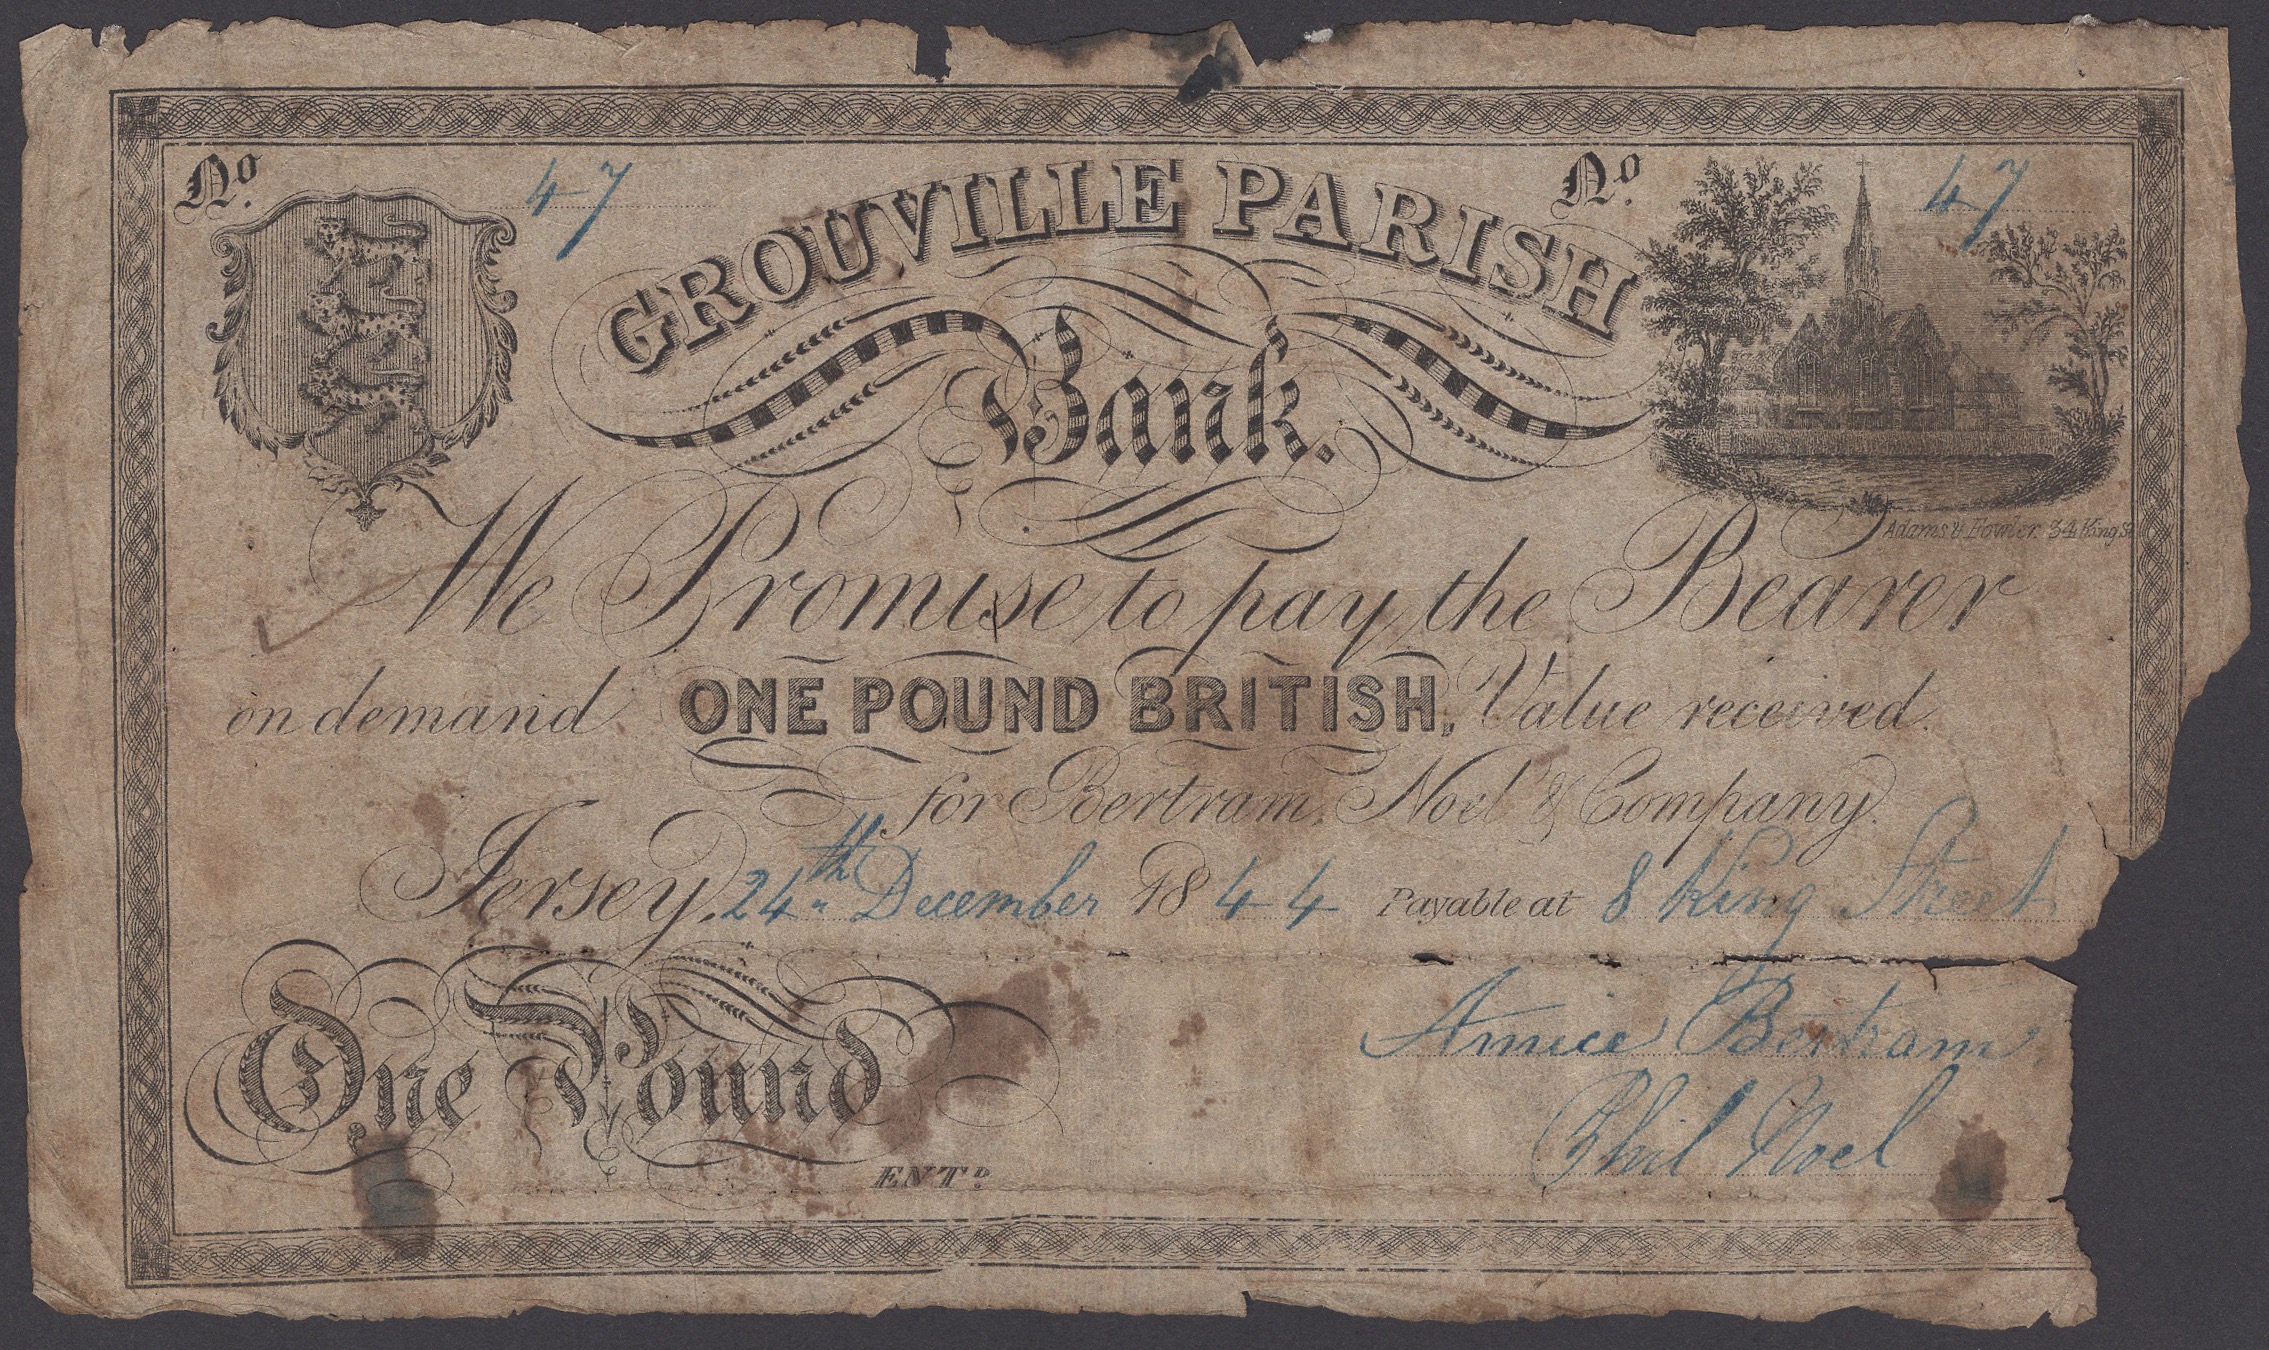 No. 47
No. 47
GROUVILLE PARISH
Bank.
Adams & Fowler. 34 King St
We Promise to pay the Bearer
on demand ONE POUND BRITISH, Value received.
for Bertram, Noel & Company.
Jersey, 24th December 1844 Payable at 8 King Street
One Pound
Bertram
Phil Noel
ENTD